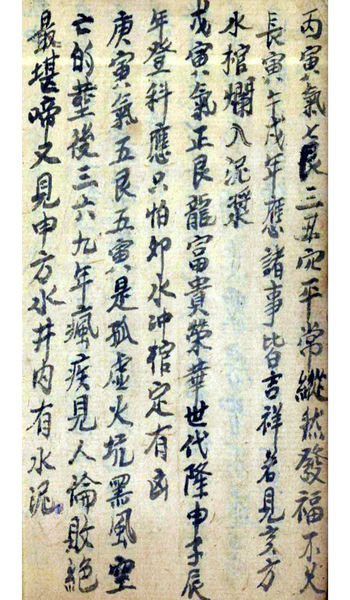 丙寅氣七艮三丑穴平常縱然發福不久
長寅午戌年應諸事皆吉祥若見亥方
水棺爛入泥漿
戊寅氣正艮龍富貴榮華世代隆申子辰
年登科應只怕卯水冲棺定有凶
庚寅氣五艮五寅是孤虛火坑黑風空
亡的塟後三六九年瘋疾見人論敗絕
最堪啼又見申方水井內有水泥